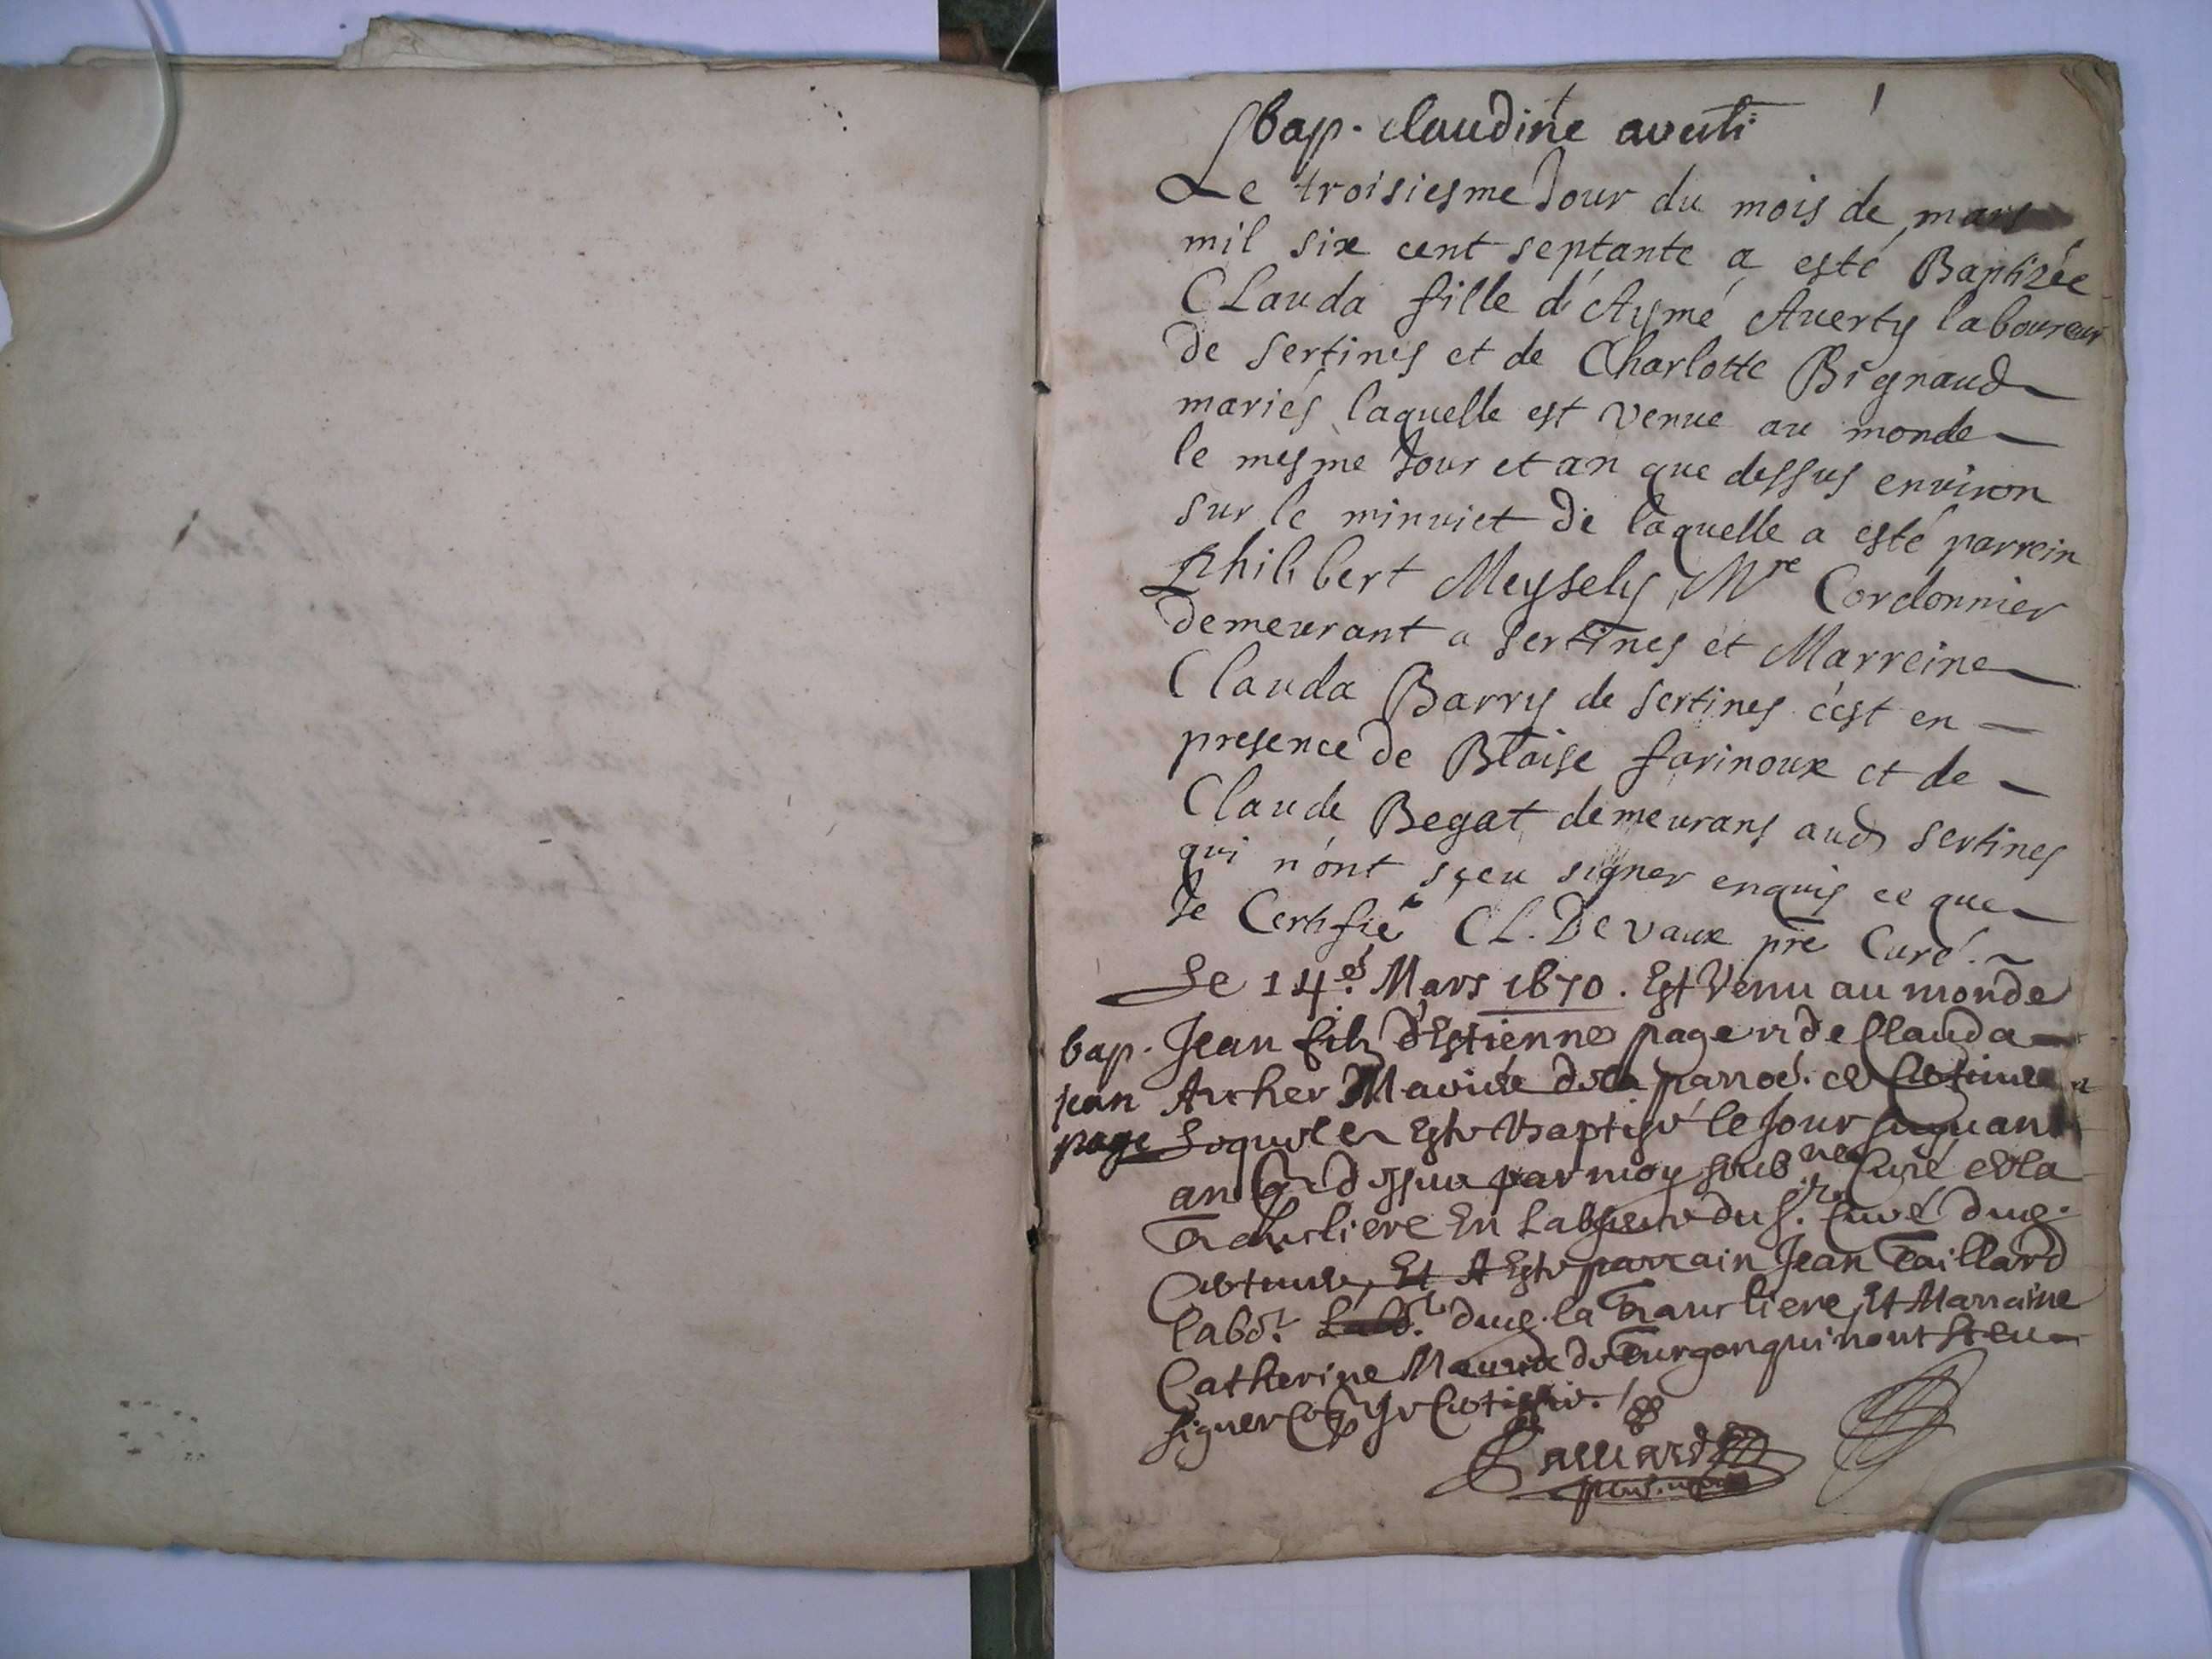 bap. claudine averti
Le troisiesme Jour du mois de mars
mil six cent septante a esté Baptizée
CLauda fille d'Aymé Averty laboureur
de Sertines et de Charlotte Bignaud
mariés laquelle est venue au monde
le mesme Jour et an que dessus environ
sur le minuict de laquelle a esté parrein
Philibert Meysely Mre Cordonnier
demeurant a Sertines et Marreine
Clauda Barry de Sertines c'est en
presence de Blaise farinoux et de
Claude Begat demeurans aud Sertines
qui n'ont sçeu signer enquis ce que
Je Certifie CL. Devaux pre Curé.
Le 14e. Mars 1670. Est Venu au monde
bap. Jean filz d'Estienne page et de Clauda
jean Archer Mariés de la parroe. de
page Lequel a Esté Baptisé le Jour suyuant
an que dessus par moy soub.né Curé de la
Trancliere En Labsence du Sr. Curé dud.
Et A Esté parrain Jean Taillard
labor. dud. la Trancliere, Et Marraine
Catherine de Turgon qui nont sceu
signer Ce q Je Certiffie.